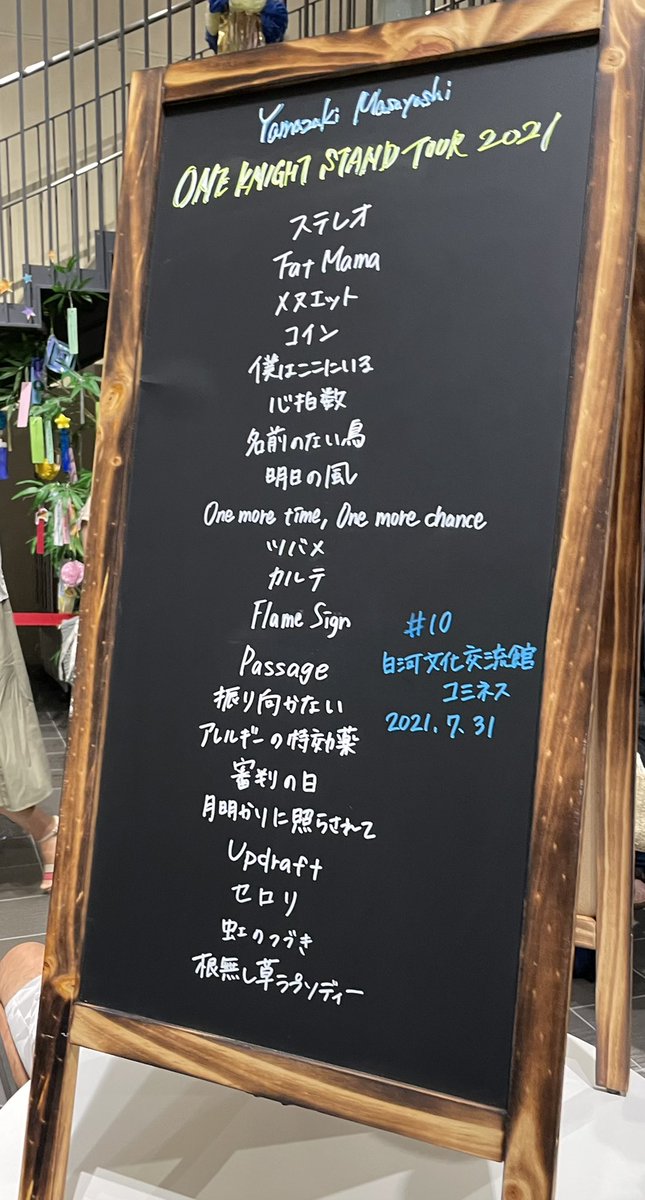 Yamazaki Masayoshi
ONE KNIGHT STAND TOUR 2021
ステレオ
Fat Mama
メヌエット
コイン
僕はここにいる
心拍数
名前のない鳥
明日の風
One more time, One more chance
ツバメ
カルテ
Flame Sign
Passage
振り向かない
アレルギーの特効薬
審判の日
月明かりに照らされて
Updraft
セロリ
虹のつづき
根無し草ラプソディー
#10
白河文化交流館
コミネス
2021.7.31